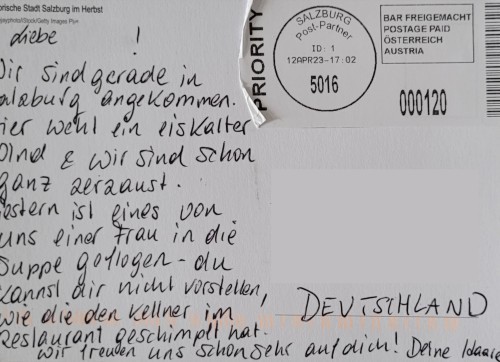 orische Stadt Salzburg im Herbst
Liebe !
Wir sind gerade in
alzburg angekommen.
ier weht ein eiskalter
Wind & wir sind schon
ganz zerzaust.
estern ist eines von
uns einer Frau in die
Suppe geflogen - du
kannst dir nicht vorstellen,
wie die den Kellner im
Restaurant geschimpft hat.
Wir freuen uns schon sehr auf dich! Deine
PRIORITY
SALZBURG
Post-Partner
ID: 1
12APR23-17:02
5016
BAR FREIGEMACHT
POSTAGE PAID
ÖSTERREICH
AUSTRIA
000120
DEUTSCHLAND